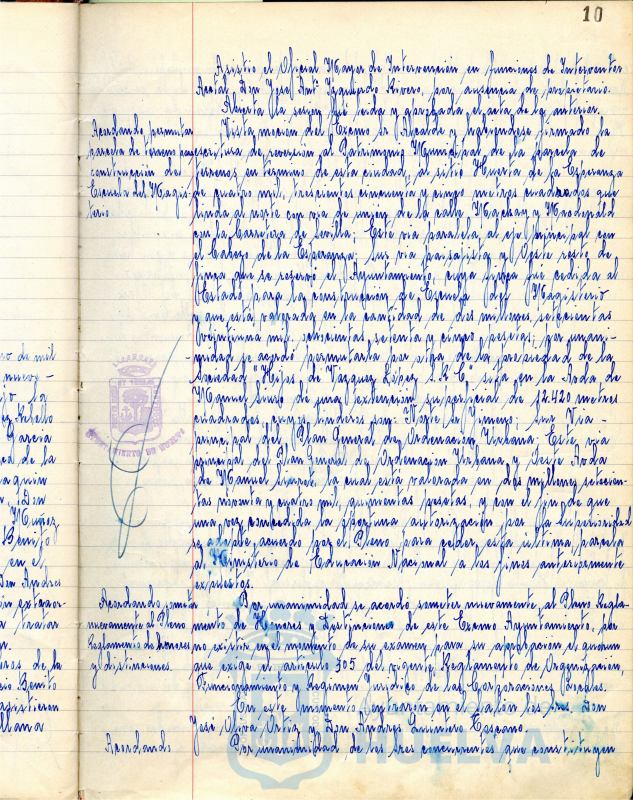 10
Asistió el Oficial Mayor de Intervención en funciones de Interventor
Acctal. Don José Antº Izquierdo Rivero, por ausencia del propietario.
Abierta la sesión fué leida y aprobada el acta de la anterior.
Acordando permutar
parcela de terreno para
construcción de
Escuela del Magis-
terio
Vista moción del Excmo Sr Alcalde y habiendose firmado la
escritura de reversión al Patrimonio Municipal de la parcela de
terrenos en termino de esta ciudad, al sitio Huerta de la Esperanza
de cuatro mil, trescientos cincuenta y cinco metros cuadrados que
linda al norte con via de unión de la calle Mackay y Macdonald
con la Carretera de Sevilla; Este via paralela al eje principal con
el Cabezo de la Esperanza; Sur via paisajista y Oeste resto de
finca que se reservó el Ayuntamiento, cuya finca fué cedida al
Estado para la construcción de Escuela del Magisterio
y que está valorada en la cantidad de dos millones, setecientas
veintiuna mil, ochocientas setenta y cinco pesetas; por unani-
midad se acordó permutarla por otra de la propiedad de la
Sociedad "Hijos de Vazquez López S.R.C." sita en la Avda de
Manuel Siurot de una extensión superficial de 12.420 metros
cuadrados, cuyos linderos son: Norte Sr Jimenez; sur Via-
principal del Plan General de Ordenación Urbana; Este via
principal del Plan General de Ordenación Urbana y Oeste Avda
de Manuel Siurot, la cual está valorada en dos millones setecien-
tas noventa y cuatro mil, quinientas pesetas, y con el fin de que
una vez concedida la oportuna autorización por la superioridad
se adopte acuerdo por el Pleno para ceder esta última parcela
al Ministerio de Educación Nacional a los fines anteriormente
expuestos.
Acordando someter
nuevamente al Pleno
Reglamento de honores
y distinciones.
Por unanimidad se acordó someter nuevamente al Pleno Regla-
mento de Honores y Distinciones de este Excmo Ayuntamiento, por
no existir en el momento de su examen para su aprobación el quorum
que exige el artículo 305 del vigente Reglamento de Organización,
Funcionamiento y Regimen Juridico de las Corporaciones Locales.
En este momento entraron en el salón los sres. Don
José Oliva Ortiz y Don Andrés Quintero Toscano.
Acordando
Por unanimidad de los sres concurrentes que constituyen
HUELVA